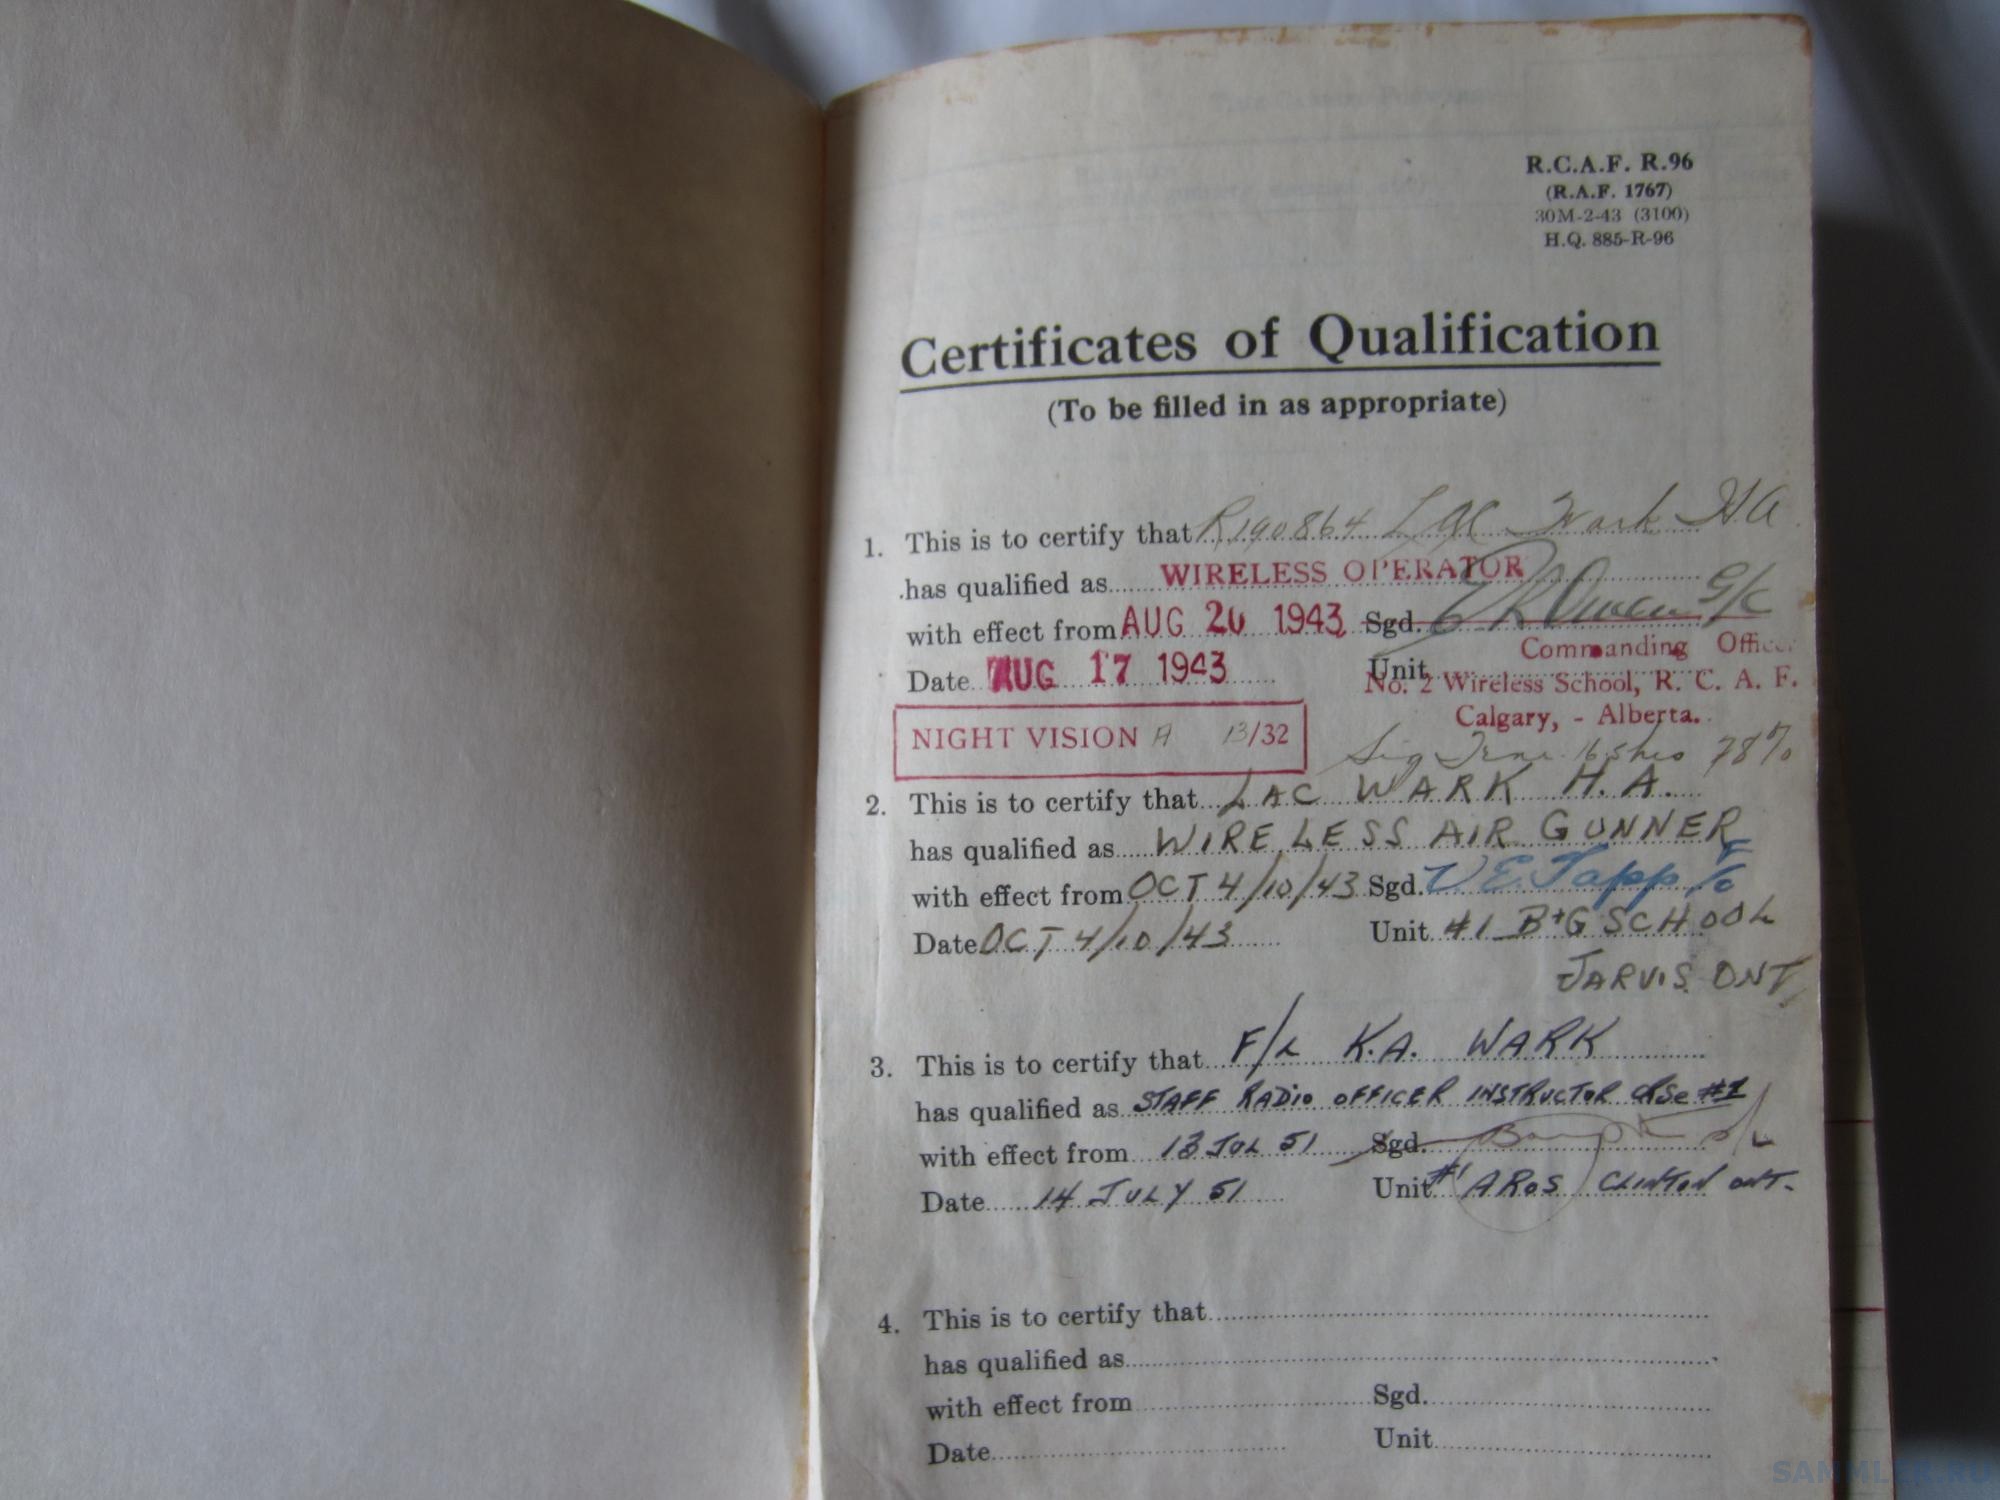 R.C.A.F. R.96
(R.A.F. 1767)
30M-2-43 (3100)
H.Q. 885-R-96
Certificates of Qualification
(To be filled in as appropriate)
1. This is to certify that R190864 LAC Wark HA
has qualified as WIRELESS OPERATOR
with effect from AUG 20 1943 Sgd. G/C
Commanding Officer
Date AUG 17 1943 Unit
No. 2 Wireless School, R. C. A. F.
Calgary, - Alberta.
NIGHT VISION A 13/32
78%
2. This is to certify that LAC WARK H.A.
has qualified as WIRELESS AIR GUNNER
with effect from OCT 4/10/43 Sgd. V E. Tapp F/O
Date OCT 4/10/43 Unit #1 B+G SCHOOL
JARVIS ONT
3. This is to certify that F/L K.A. WARK
has qualified as STAFF RADIO OFFICER INSTRUCTOR CRSE #1
with effect from 13 JUL 51 Sgd. S/L
Date 14 JULY 51 Unit #1 AROS CLINTON ONT.
4. This is to certify that
has qualified as
with effect from Sgd.
Date Unit
SAMMLER.RU